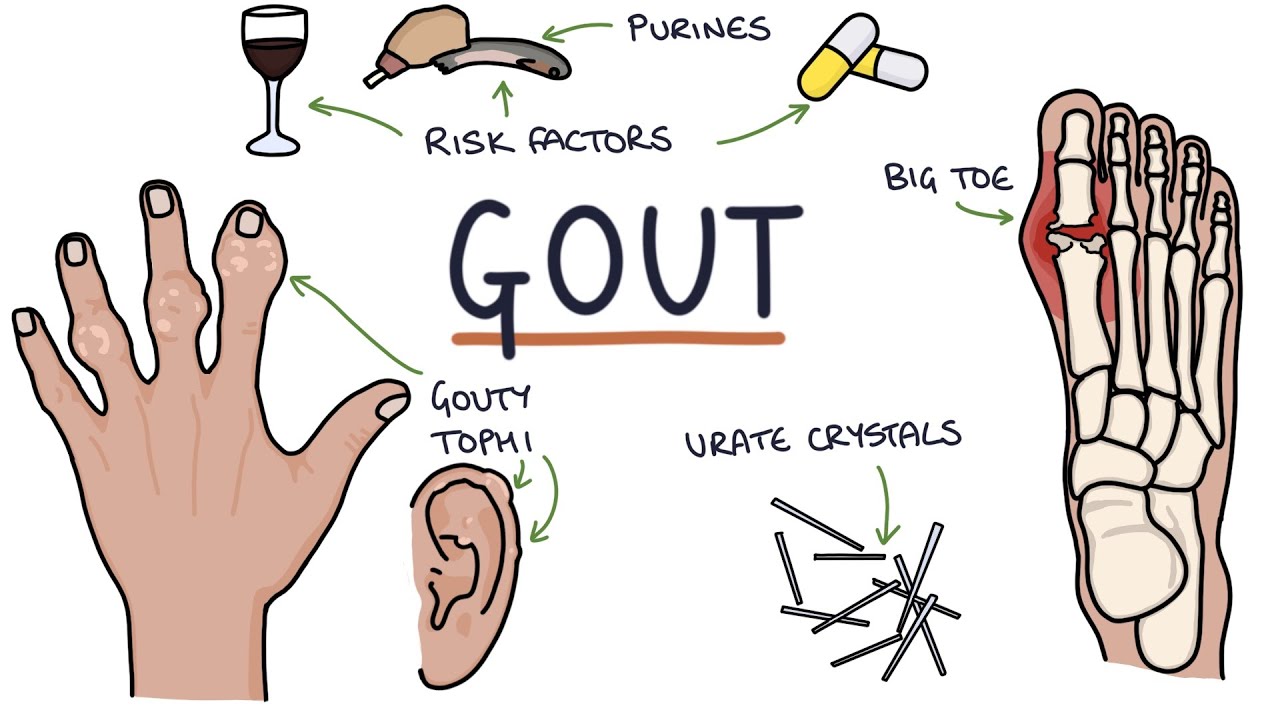 PURINES
RISK FACTORS
BIG TOE
GOUT
GOUTY
TOPHI
URATE CRYSTALS